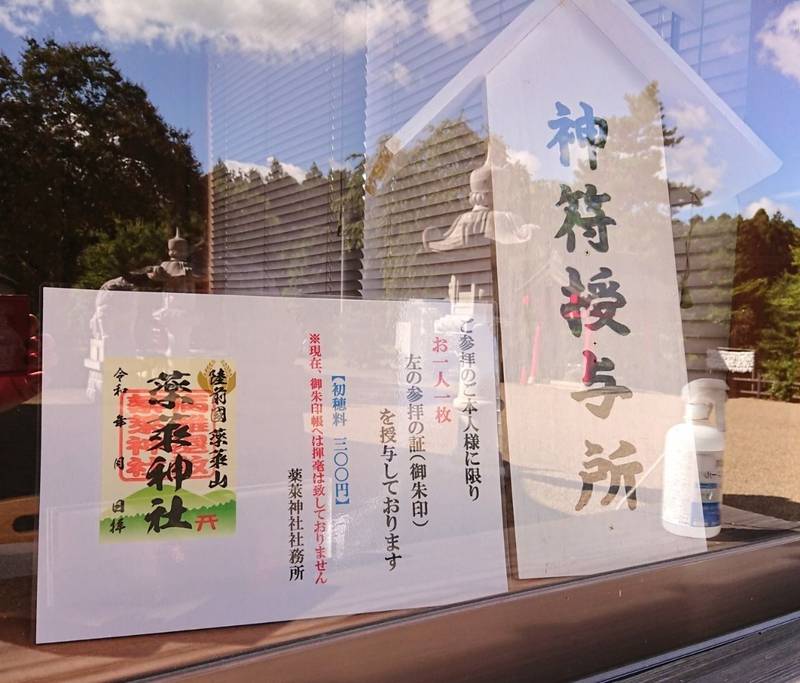 神符授与所
ご参拝のご本人様に限り
お一人一枚
左の参拝の証(御朱印)
を授与しております
【初穂料 三〇〇円】
※現在、御朱印帳へは揮毫は致しておりません
薬萊神社社務所
陸前國 薬萊山
薬萊神社
令和 年 月 日拝